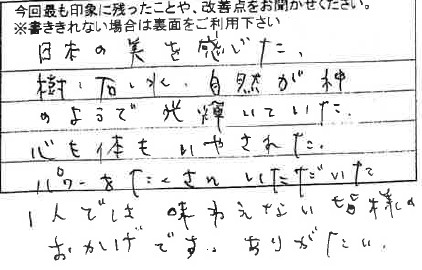 今回最も印象に残ったことや、改善点をお聞かせください。
※書ききれない場合は裏面をご利用下さい
日本の美を感じた、
樹、石、水、自然が神
のようで光輝いていた。
心も体もいやされた。
パワーをたくさんいただいた
1人では味わえない皆様の
おかげです。ありがたい。